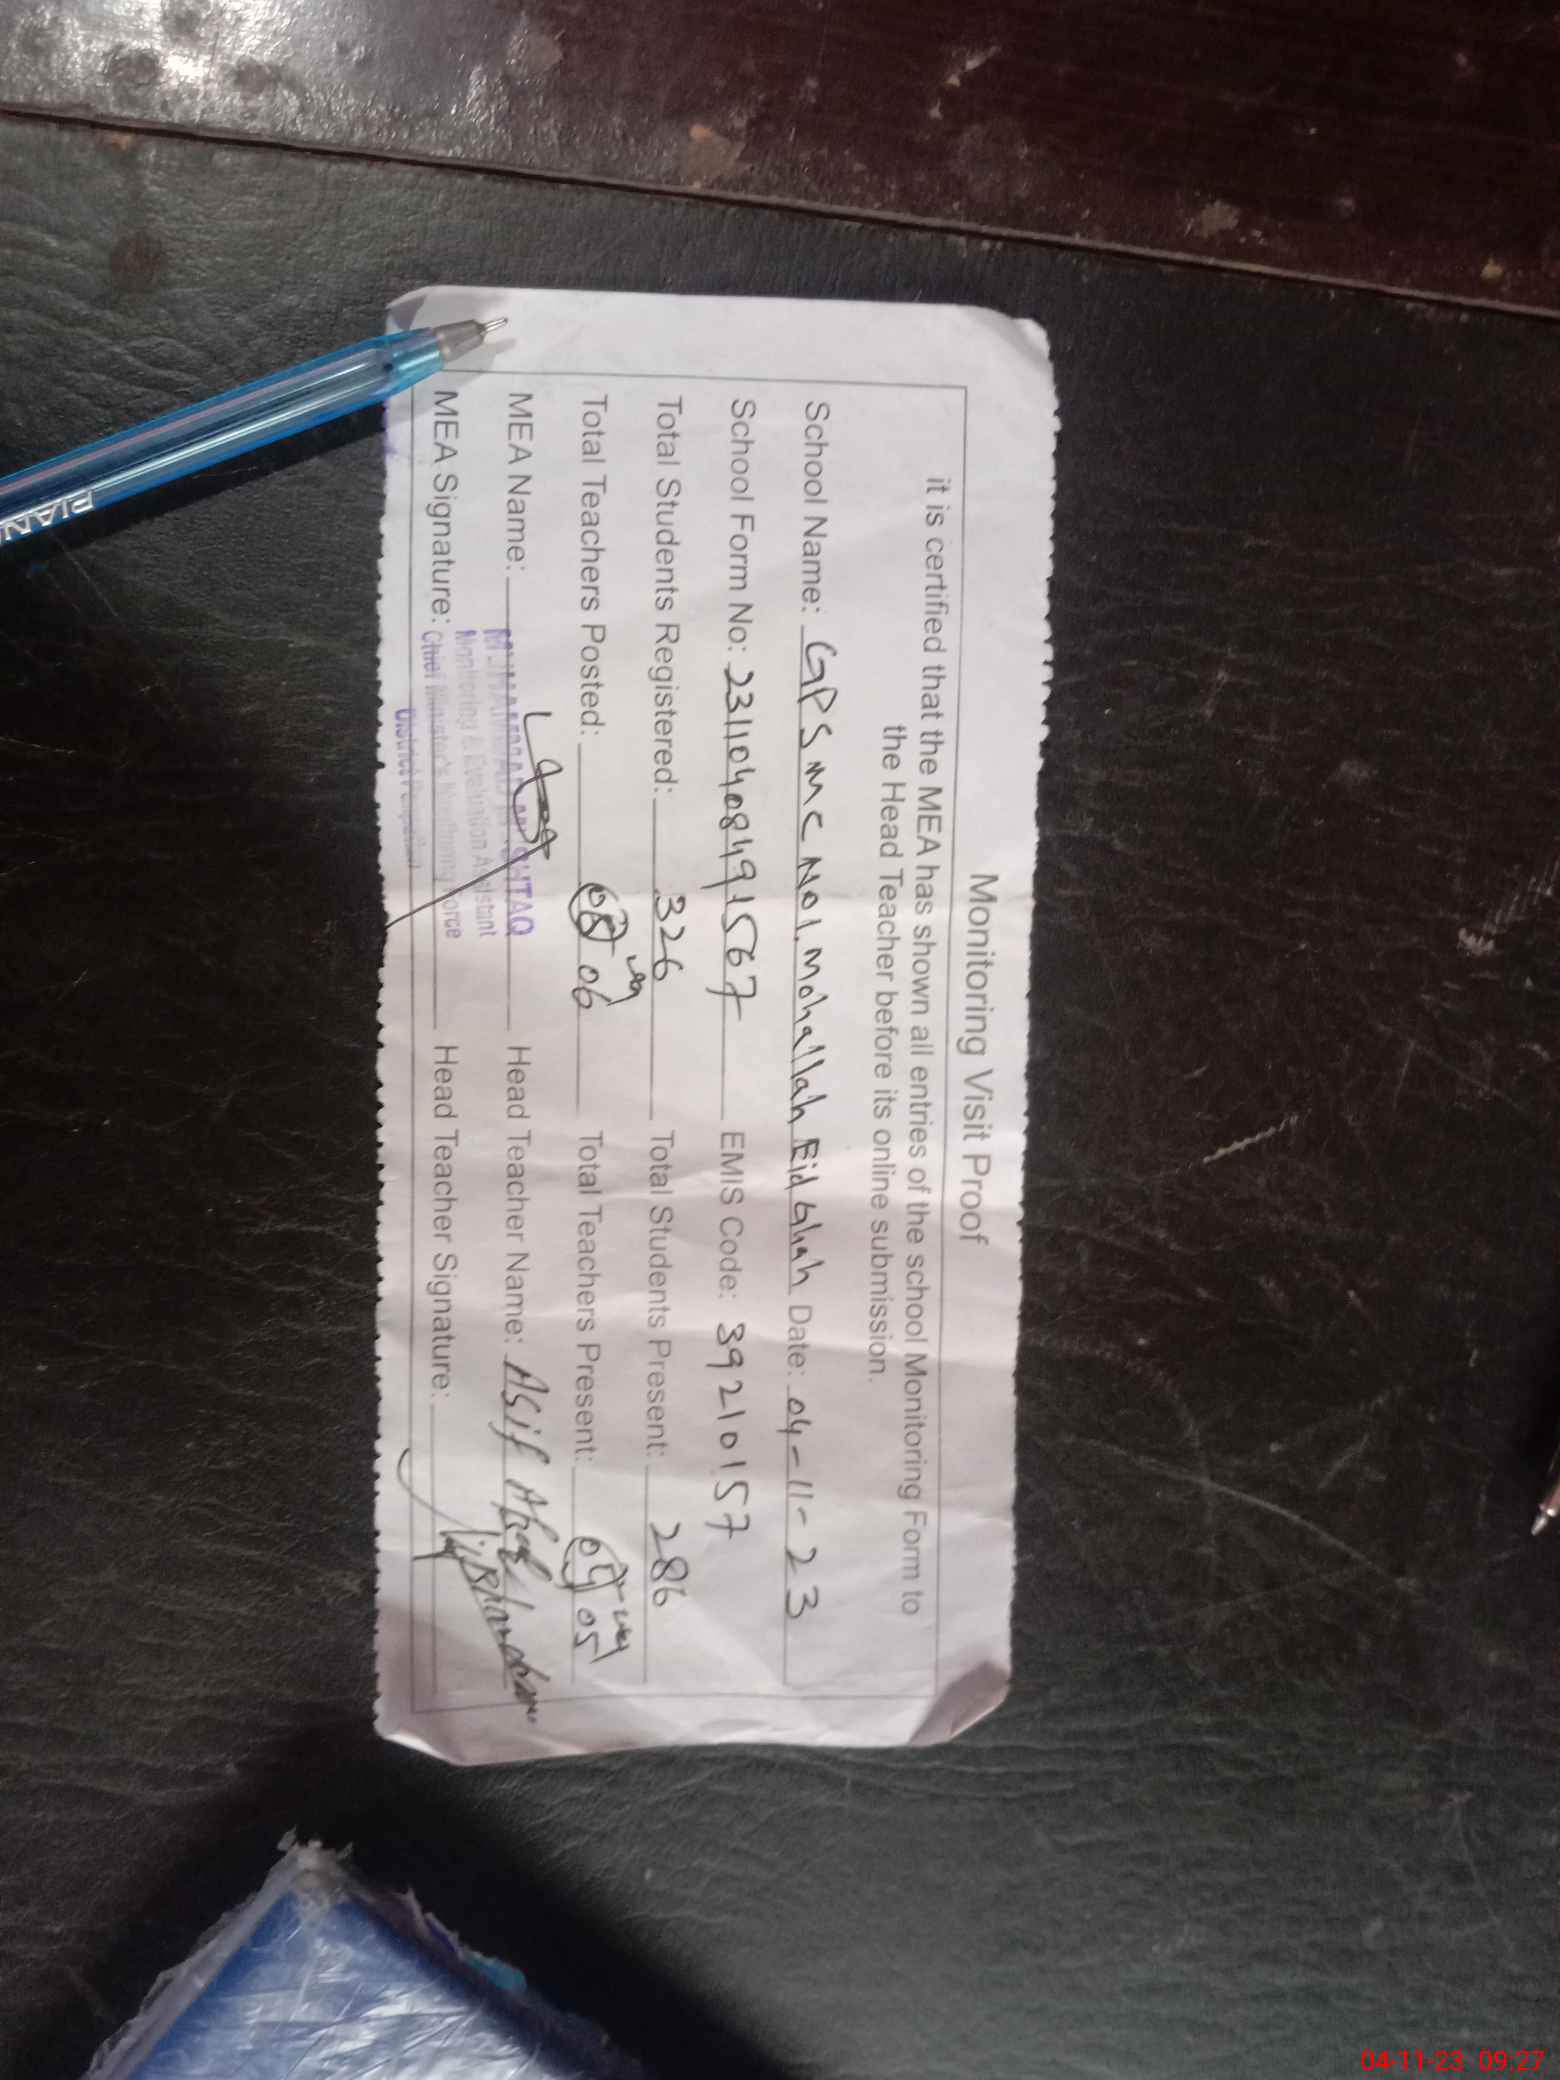 Monitoring Visit Proof
it is certified that the MEA has shown all entries of the school Monitoring Form to
the Head Teacher before its online submission.
School Name: GPS MC NO1. Mohallah Eid Ghah Date: 04-11-23
School Form No: 23110408491567 EMIS Code: 39210157
Total Students Registered: 326 Total Students Present: 286
Total Teachers Posted: 06 Total Teachers Present: 05
MEA Name: Head Teacher Name: Asif
MUSHTAQ
Monitoring & Evaluation Assistant
MEA Signature: Head Teacher Signature:
Chief Minister's Monitoring Force
District
PIANO
04-11-23 09:27